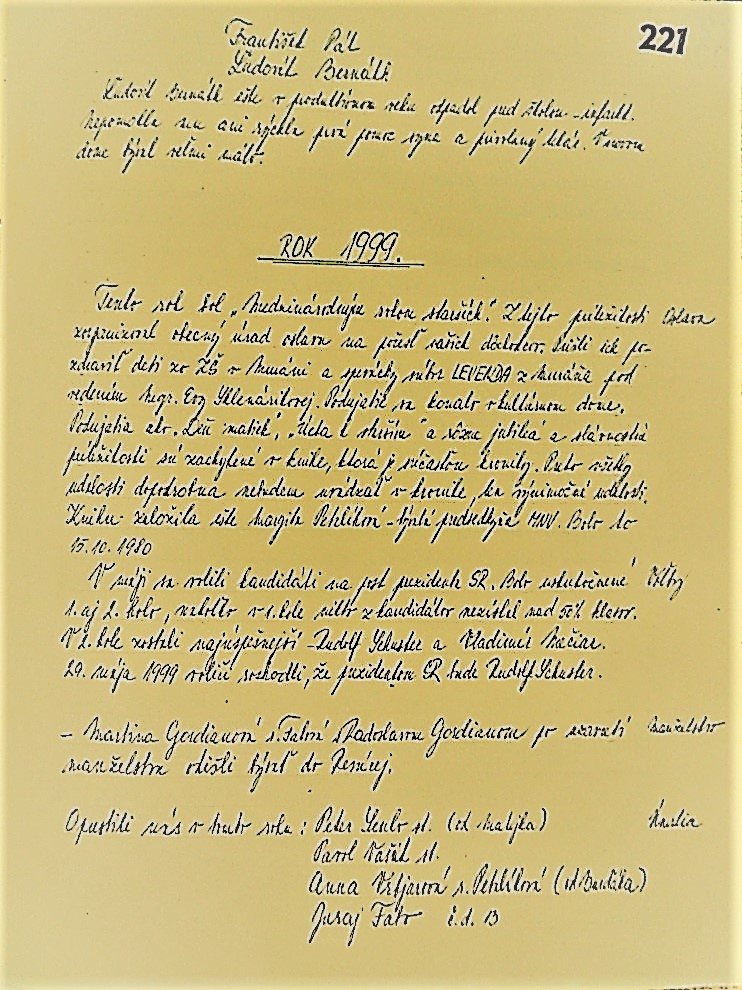 221
František Pál
Ľudovít Bernáth
Ľudovít Bernáth ešte v produktívnom veku odpadol pred stolom - infarkt.
Nepomohla mu ani rýchla prvá pomoc syna a privolaný lekár. V novom
dome býval veľmi málo.
ROK 1999.
Tento rok bol „Medzinárodným rokom starších". Z tejto príležitosti Oslava
zorganizoval obecný úrad oslavu na počesť našich dôchodcov. Prišli ich po-
zdraviť deti zo ZŠ v Muráni a spevácky súbor LEVENDA z Muráňa pod
vedením Mgr. Evy Sklenárikovej. Podujatie sa konalo v kultúrnom dome.
Podujatia ako „Deň matiek", „Úcta k starším" a rôzne jubileá a slávnostné
príležitosti sú zachytené v knihe, ktorá je súčasťou kroniky. Preto všetky
udalosti dopodrobna nebudem uvádzať v kronike, len výnimočné udalosti.
Knihu založila ešte Margita Petrlíková - bývalá predsedkyňa MNV. Bolo to
15.10.1980
V máji sa volili kandidáti na post prezidenta SR. Bolo uskutočnené Voľby
1. aj 2. kolo, nakoľko v 1. kole nikto z kandidátov nezískal nad 50% hlasov.
V 2. kole zostali najúspešnejší - Rudolf Schuster a Vladimír Mečiar.
29. mája 1999 voliči rozhodli, že prezidentom SR bude Rudolf Schuster.
- Martina Gordianová r. Fafová s Radoslavom Gordianom po uzavretí Manželstvo
manželstva odišli bývať do Revúcej.
Opustili nás v tomto roku: Peter st. (od Matijka) Úmrtia
Pavol Vašút st.
Anna r. Petrlíková (od Bartáka)
Juraj Fafo č.d. 13